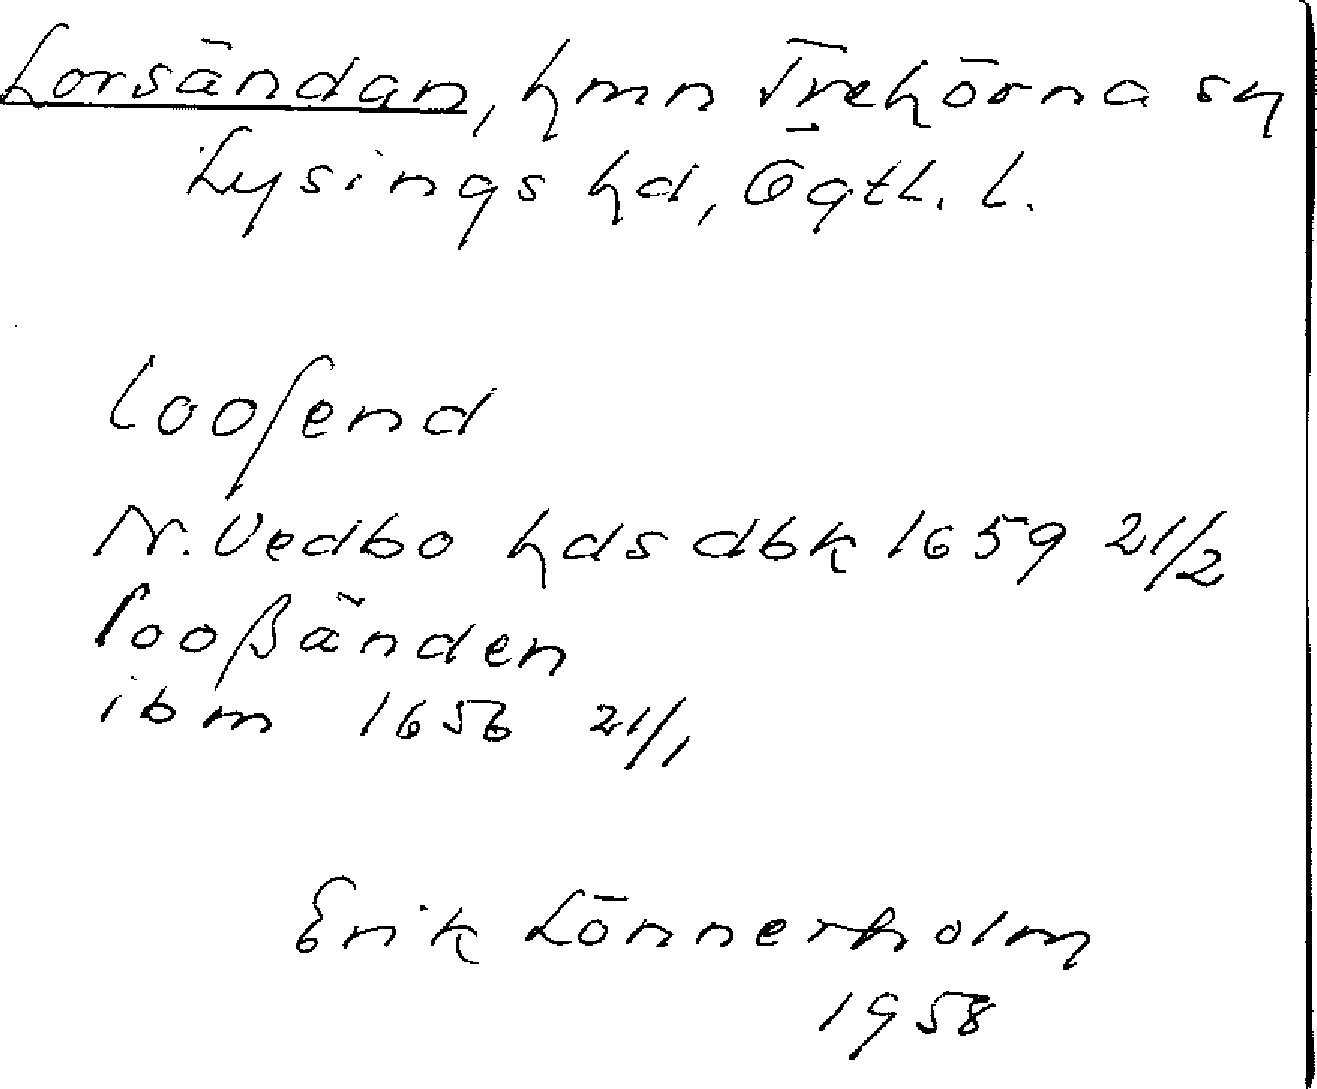 Lorsändan, hmn Trehörna sn
Lysings hd, Ögtl. l.
looſend
N. Vedbo hds dbk 1659 21/2
looßänden
ibm 1656 21/1
Erik Lönnerholm
1958